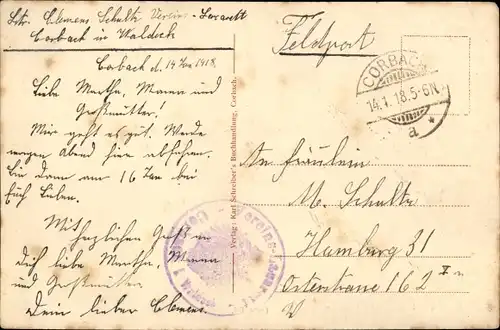 Ldr. Clemens Schultz Vereins-Lazarett
Corbach in Waldeck
Corbach d. 14 Jan 1918.
Liebe Martha, Mama und
Großmutter!
Mir geht es gut. Werde
morgen Abend hier abfahren.
Bin dann am 16 Jan bei
Euch Lieben.
Mit
herzlichen Gruß an
dich liebe Martha, Mama
und Großmutter
Dein lieber Clemens.
Verlag: Karl Schreiber's Buchhandlung, Corbach.
Feldpost
CORBACH
14.1.18.5-6N.
a
An Fräulein
M. Schultz
Hamburg 31
Osterstrasse 162